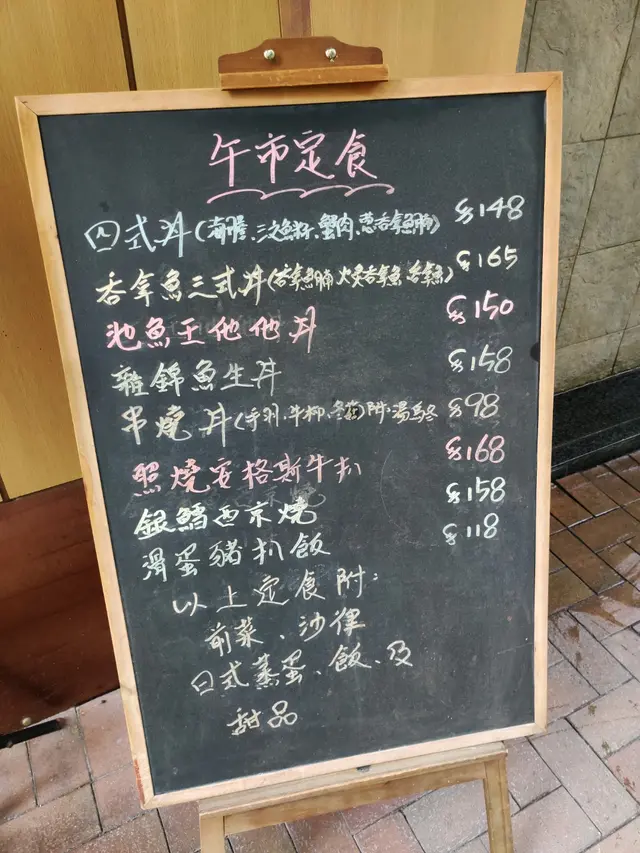 午市定食
四式丼(海膽、三文魚籽、蟹肉、蔥吞拿魚腩) $148
吞拿魚三式丼(吞拿魚腩 火炙吞拿魚 吞拿魚) $165
池魚王他他丼 $150
雜錦魚生丼 $158
串燒丼(手羽、牛柳、冬菇)附湯烏冬 $98
照燒安格斯牛扒 $168
銀鱈西京燒 $158
滑蛋豬扒飯 $118
以上定食附：
前菜、沙律
日式蒸蛋、飯、及
甜品